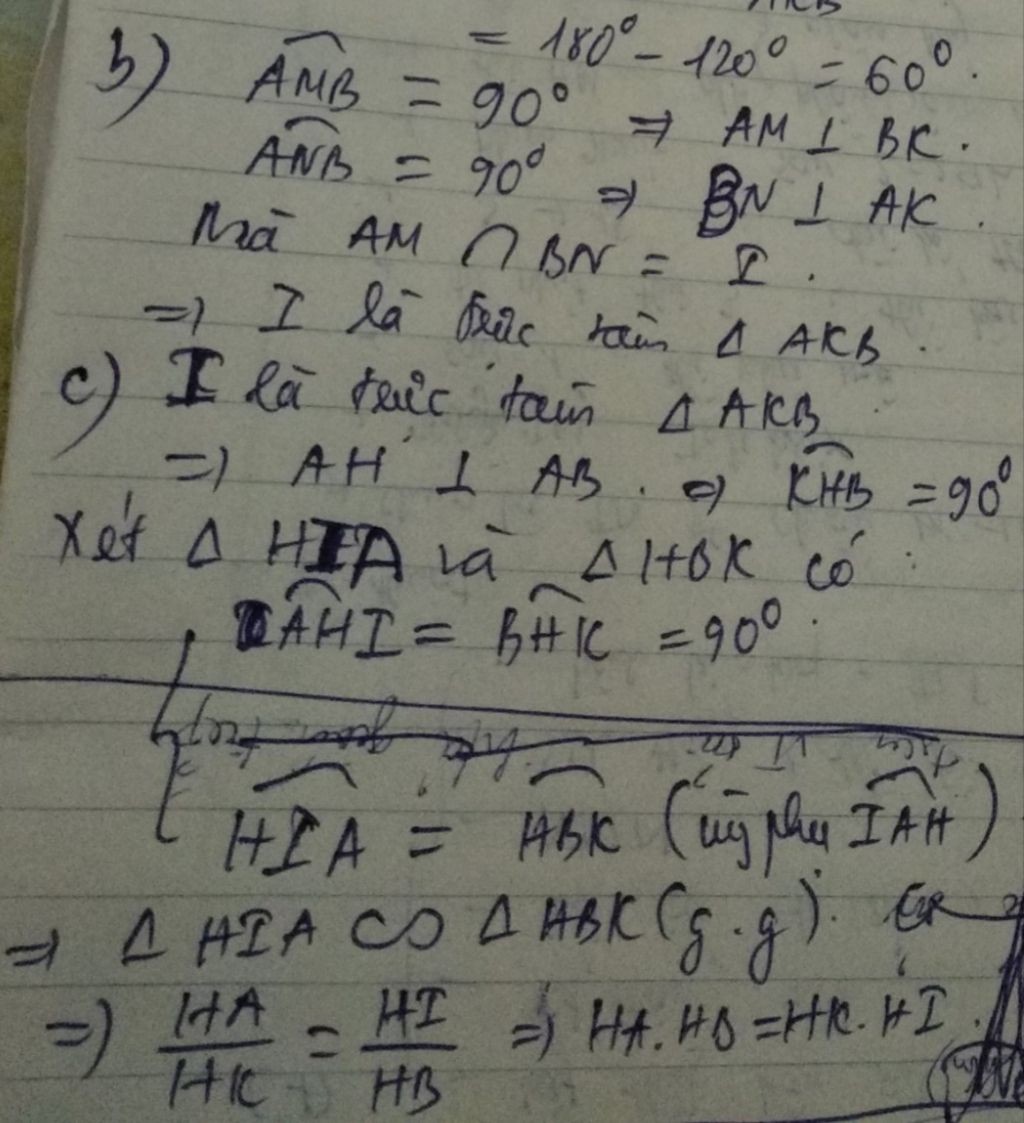 = 180° - 120° = 60°.
b) AMB = 90° => AM ⊥ BK.
ANB = 90° => BN ⊥ AK.
Mà AM ∩ BN = I.
=> I là trực tâm Δ AKB.
c) I là trực tâm Δ AKB
=> AH ⊥ AB. => KHB = 90°
Xét Δ HIA và Δ HBK có:
AHI = BHK = 90°.
HIA = HBK (cùng phụ IAH)
=> Δ HIA ∽ Δ HBK (g.g).
=> HA/HK = HI/HB => HA.HB = HK.HI.